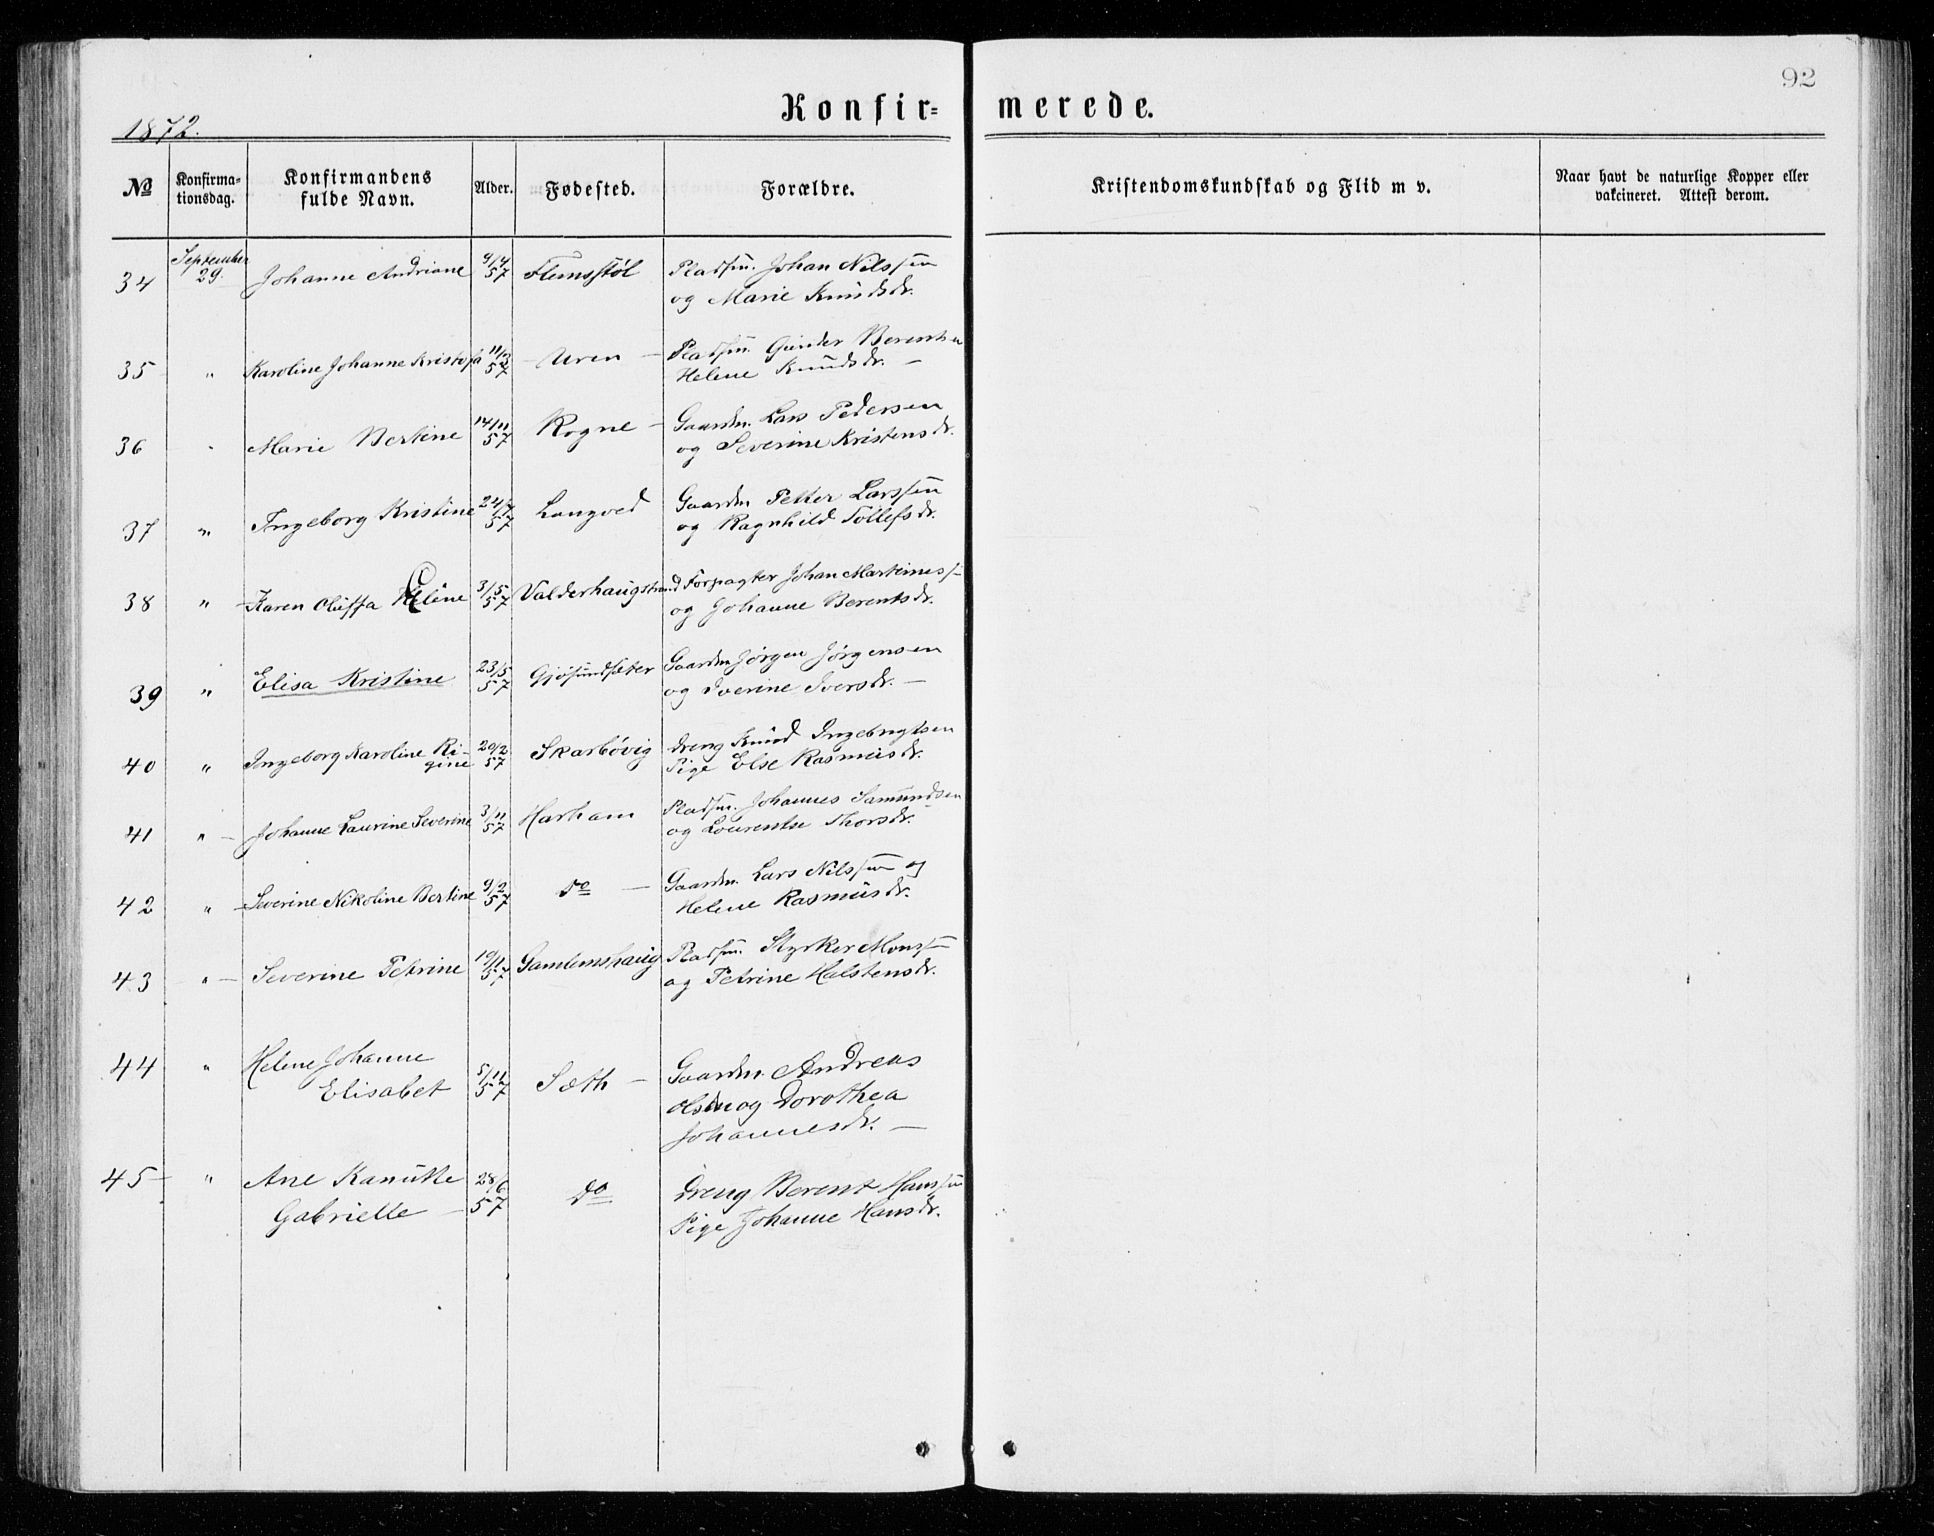 92
Konfir=merede.
1872.
№ Konfirma-tionsdag. Konfirmandens fulde Navn. Alder. Fødested. Forældre. Kristendomskundskab og Flid m v. Naar havt de naturlige Kopper eller vakcineret. Attest derom.
34 September 29. Johanne Andriane 9/4 57 Flemsstøl Pladsm. Johan Nilssen
og Marie Knudsdr.
35 " Karoline Johanne Kristofa 11/3 57 Uren – Pladsm. Gunder Berentsen
Helene Knudsdr. –
36 " Marie Bertine 14/11 57 Rogne – Gaardm. Lars Pedersen
og Severine Kristensdr.
37 " Ingeborg Kristine 24/7 57 Longved Gaardm Petter Larssen
og Ragnhild Tollefsdr.
38 " Karen Oluffa Eline 3/5 57 Valderhaugstrand Forpagter Johan Martinuss
og Johanne Berentsdr.
39 " Elisa Kristine 23/5 57 Gjøsundsæter Gaardm Jørgen Jørgensen
og Iverine Iversdr. –
40 " Ingeborg Karoline Ri-
gine 20/2 57 Skarbövig Dreng Knud Ingebrigtsen
Pige Else Rasmusdr.
41 " – Johanne Laurine Severine 3/11 57 Harham Pladsm. Johannes Samundsen
og Lourentse Thorsdr.
42 " Severine Nikoline Bertine 9/2 57 do – Gaardm. Lars Nilssen og
Helene Rasmusdr.
43 " – Severine Petrine 10/11 57 Gamlemshaug Pladsm. Styrker Monss
og Petrine Halstensdr.
44 " Helene Johanne
Elisabet 5/11 57 Sæth – Gaardm. Andreas
Olsen og Dorothea
Johannesdr. –
45 " Ane Kanutte
Gabrielle – 28/6 57 do Dreng Berent Hanssen
Pige Johanne Hansdr.